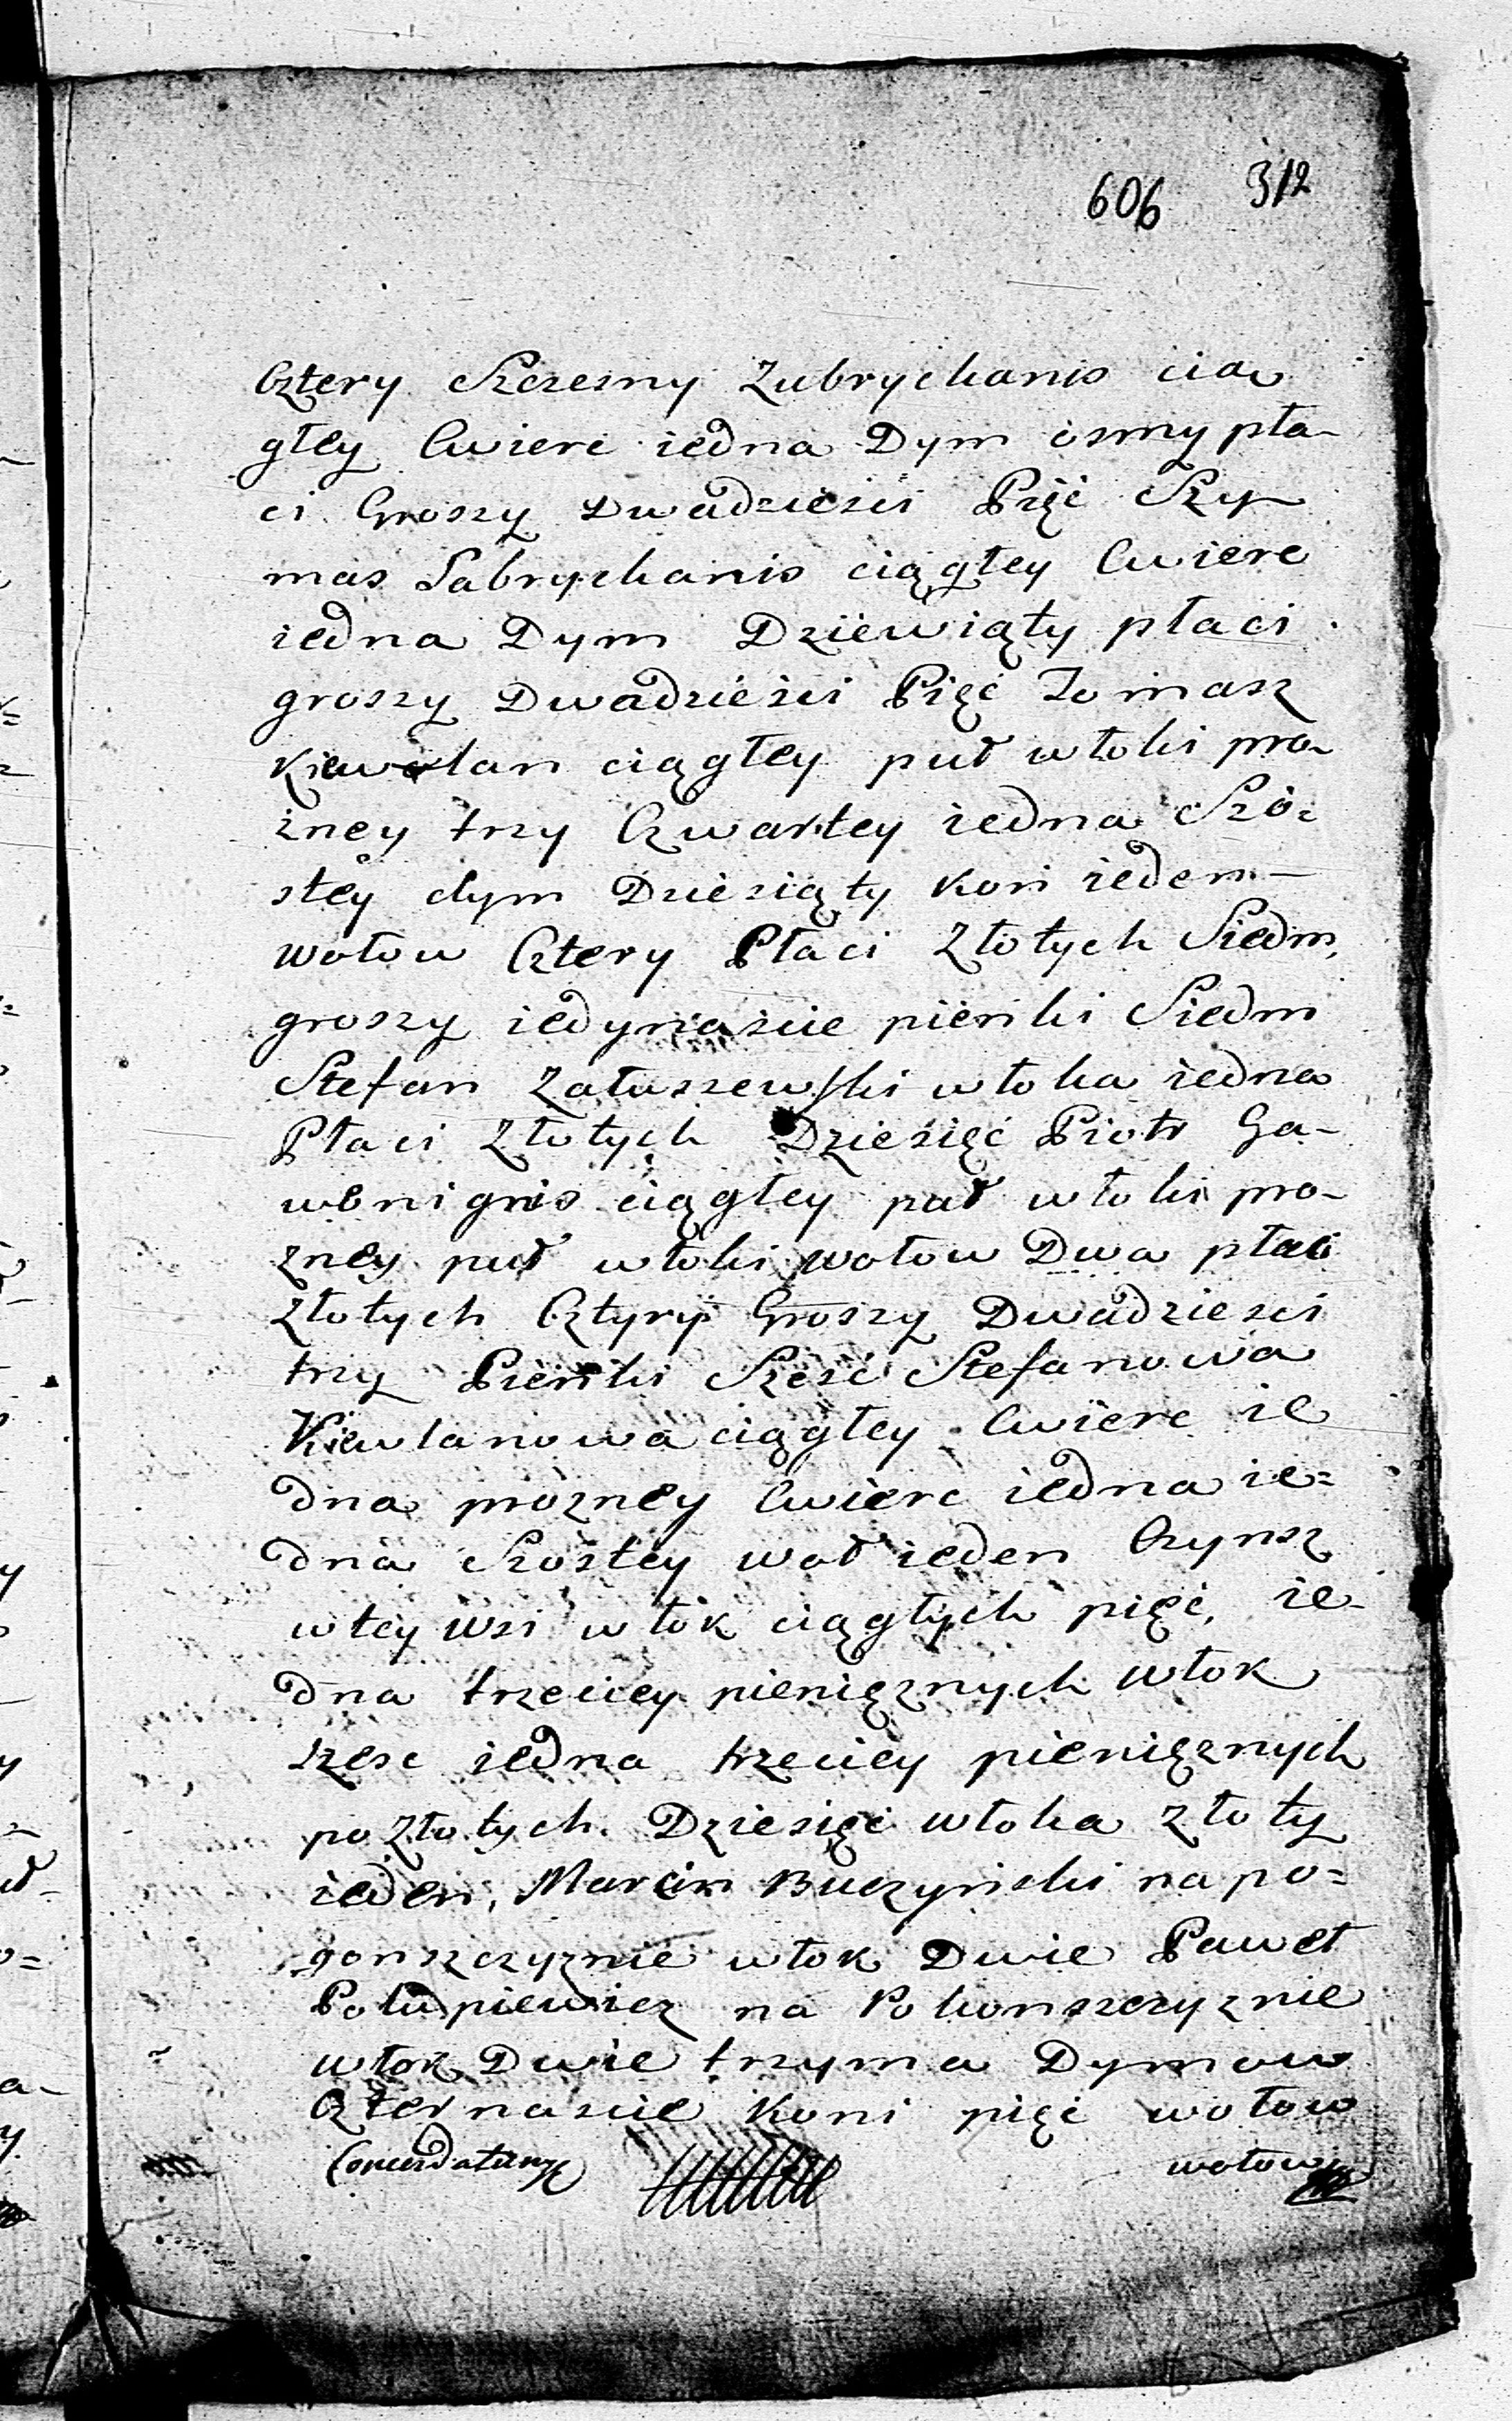 606 312
Cztery Szczesny Zubrychanis cią
głey Cwierc iedna Dym osmy pła-
ci Groszy Dwadziesci Pięć Szy-
mas Sabrychanis ciągłey Cwierc
iedna Dym Dziewiąty płaci
groszy Dwadzieści Pięć Tomasz
Kiewlan ciągłey puł włoki pro-
zney trzy Czwartey iedna Szo-
stey dym Dziesiąty Koń ieden
wołow Cztery Płaci Złotych Siedm,
groszy iedynaście pieńki Siedm
Stefan Załuszewski włoka iedna
Płaci Złotych Dziesięć Piotr Ga-
wenignis ciągłey puł włoki pro-
zney puł włoki wołow Dwa płaci
Złotych Cztyry Groszy Dwadziesci
trzy Pieńki Sześć Stefanowa
Kiewlanowa ciągłey Cwierc ie
dna prozney Cwierc iedna ie=
dna Szostey woł ieden Czynsz
wtey wsi włok ciągłych pięć, ie-
dna trzeciey pienięznych włok
szesc iedna trzeciey pienięznych
po złotych Dziesięć włoka złoty
ieden, Marcin Buczyński na po=
gonszczyznie włok Dwie Paweł
Połupiewicz na Pohonszczyznie
włok Dwie trzyma Dymow
Czternascie Koni pięć wołow
wołow